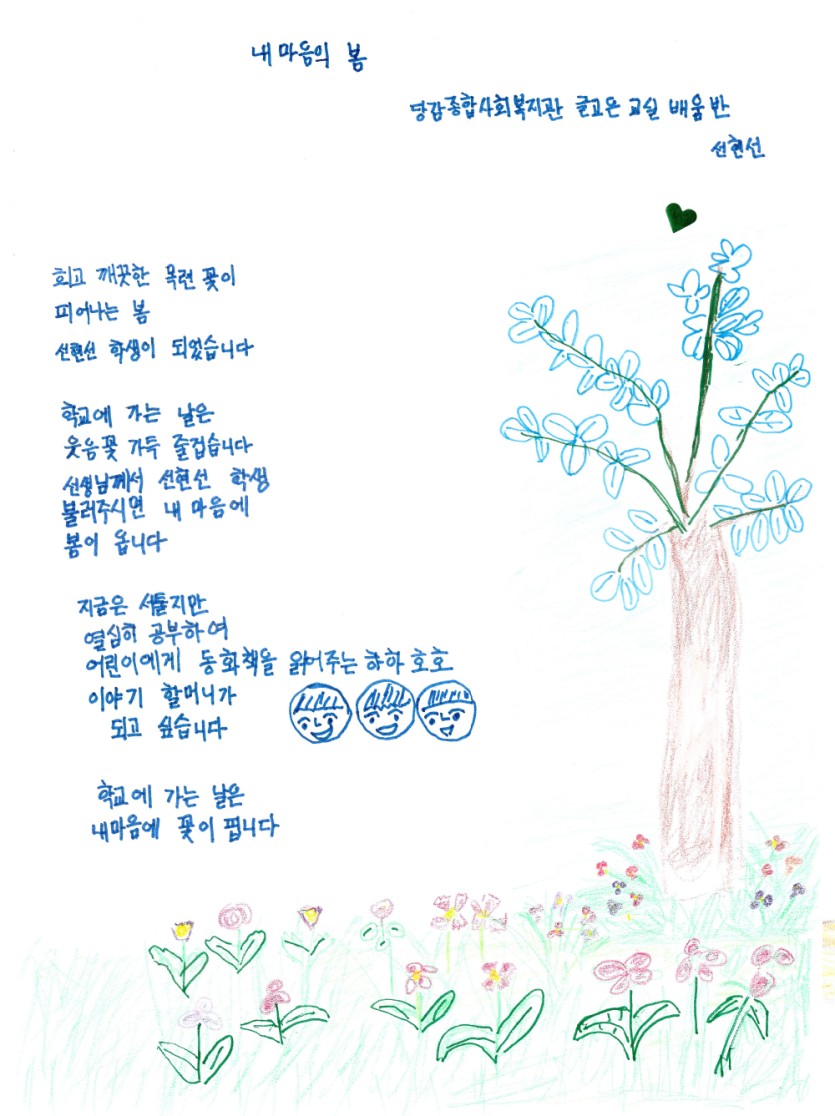 내 마음의 봄
당감종합사회복지관 글고운 교실 배움반
선현선
희고 깨끗한 목련 꽃이
피어나는 봄
선현선 학생이 되었습니다
학교에 가는 날은
웃음꽃 가득 즐겁습니다
선생님께서 선현선 학생
불러주시면 내 마음에
봄이 옵니다
지금은 서툴지만
열심히 공부하여
어린이에게 동화책을 읽어주는 하하 호호
이야기 할머니가
되고 싶습니다
학교에 가는 날은
내마음에 꽃이 핍니다